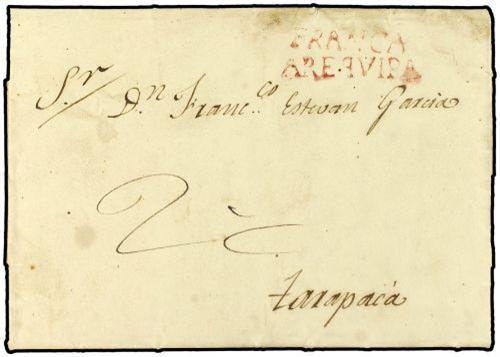 FRANCA
AREQVIPA
Sr. Dn. Francco. Estevan Garcia
2
Tarapacá